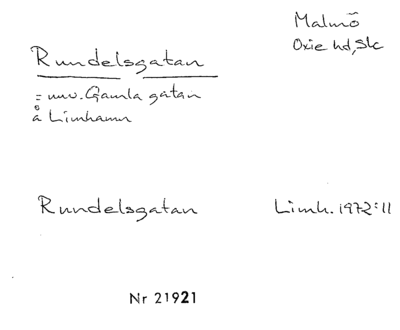 Malmö
Oxie hd, Sk
Rundelsgatan
= nuv. Gamla gatan
å Limhamn
Rundelsgatan Limh. 1972:11
Nr 21921